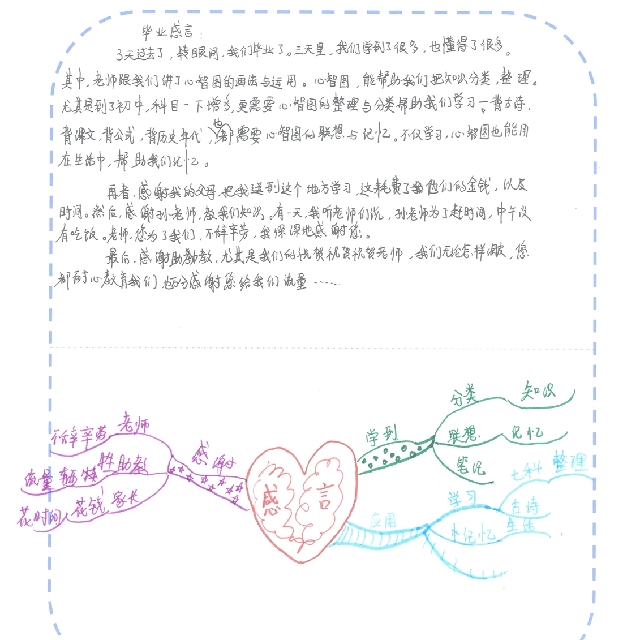 毕业感言:
3天过去了,转眼间,我们毕业了。三天里,我们学到了很多,也懂得了很多。
其中,老师跟我们讲了心智图的画法与运用。心智图,能帮助我们把知识分类,整理。
尤其是到了初中,科目一下增多,更需要心智图的整理与分类帮助我们学习。背古诗,
背课文,背公式,背历史年代,都需要心智图的联想与记忆。不仅学习,心智图也能用
在生活中,帮助我们记忆。
再者,感谢我的父母,把我送到这个地方学习,这耗费了他们的金钱,以及
时间。然后,感谢孙老师,教我们知识。有一天,我听老师们说,孙老师为了赶时间,中午没
有吃饭。老师,您为了我们,不辞辛劳,我深深地感谢您。
最后,感谢助教,尤其是我们的祝贺老师,我们无论怎样,您
都耐心教育我们,也感谢您给我们流量……
感言
感谢
老师
不辞辛劳
助教
流量
家长
花钱
花时间
学到
分类
知识
联想
记忆
笔记
应用
学习
七科
整理
古诗
记忆
生活